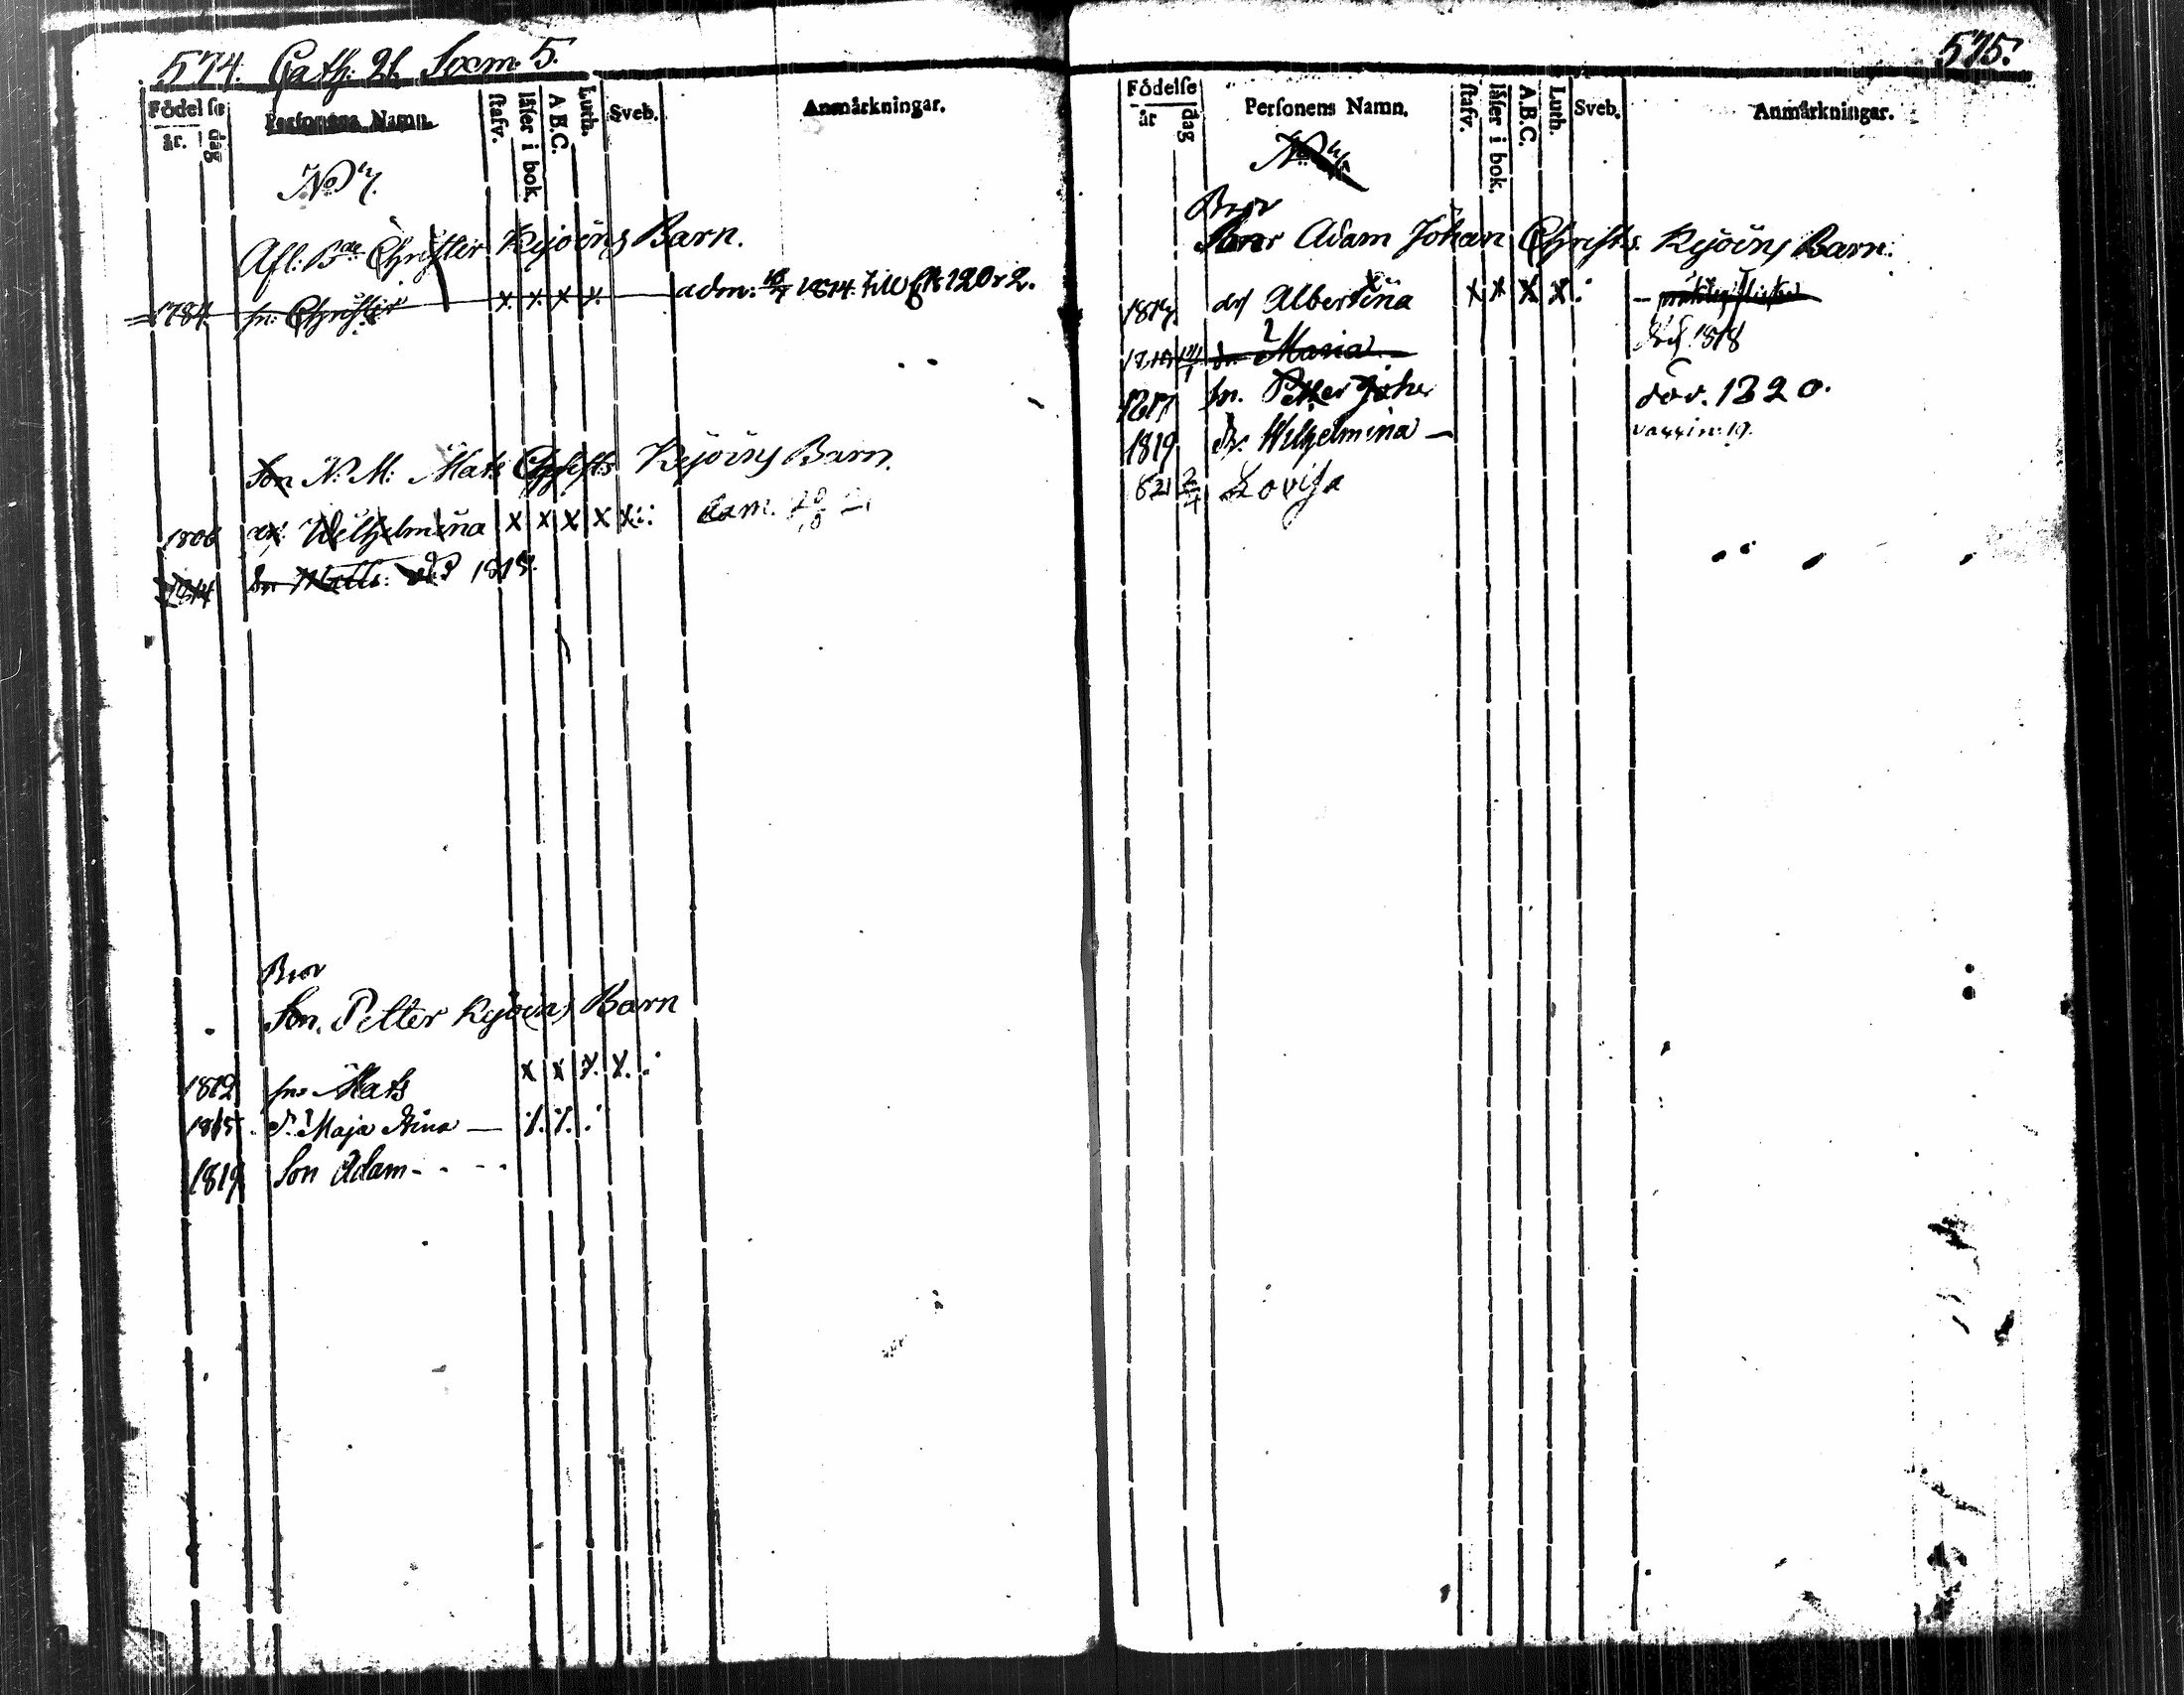 574. Cath: 21. Sxm. 5.
Födelse
år. dag
Personens Namn.
stafv.
läser i bok.
A.B.C.
Luth.
Sveb.
Anmärkningar.
No 7.
Afl: Christer Kyöins Barn.
1784 sn: Christer x x x x adm: 1814.
Son N: M: Mats Christs Kyöins Barn.
1806 Wilhelmina x x x x x
1814 Matts: död 1815.
Bror
Son. Petter Kyöins Barn
1812 sn: Mats x x x x
1815 Maja Stina —
1819 Son Adam - - - -
575.
Födelse
år dag
Personens Namn.
stafv.
läser i bok.
A.B.C.
Luth.
Sveb.
Anmärkningar.
Bror
Adam Johan Christs. Kyöins Barn.
1813 Albertina x x x x
Maria 1818
1817 sn. Petter Joh död. 1820.
1819 Wilhelmina — vaxxin: 19.
821 Lovisa